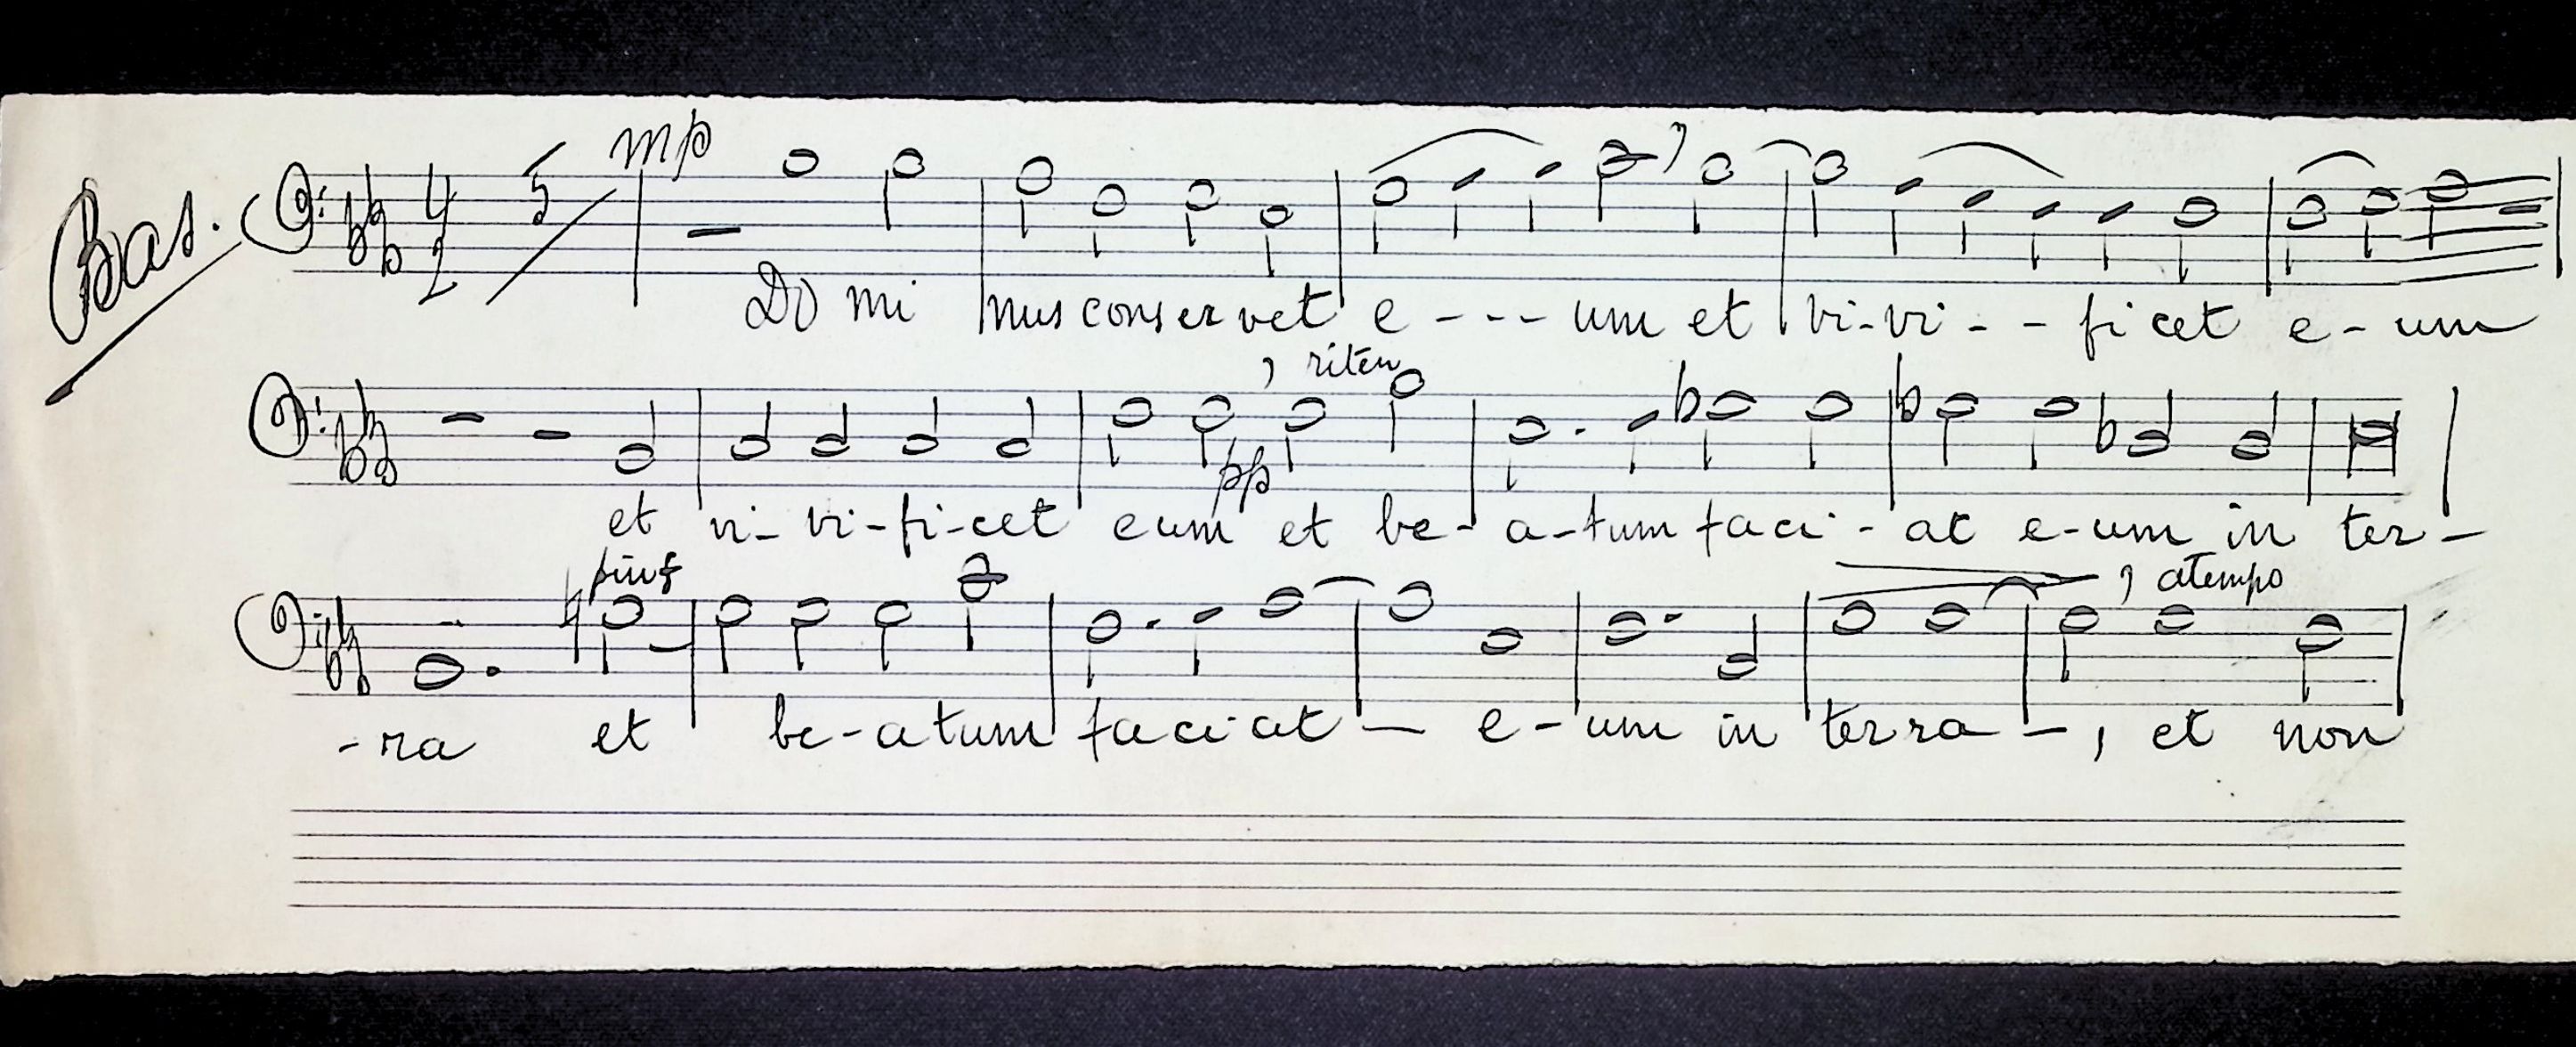 Bas.
4 2 5 mp
Do mi nus conservet e - - - um et vi-vi - - ficet e - um
, riten
pp
et vi- vi-fi-cet eum et be- a-tum faci - at e-um in ter-
piuf , atempo
-ra et be-atum faciat — e-um in terra —, et non